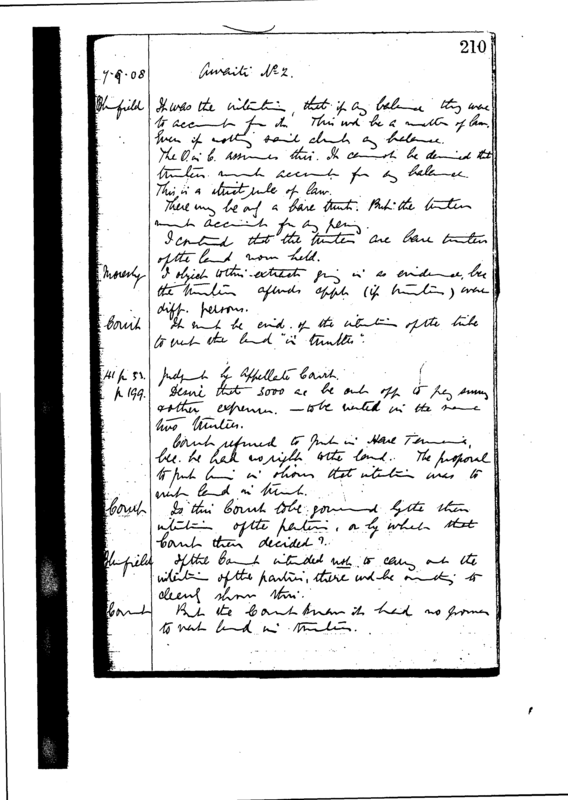 210
7-9-08 Awaiti No 2.
Blenfield It was the intention, that if any balance they were
to account for it. This wd be a matter of law.
Even if nothing said about any balance.
The O. in C. assumes this. It cannot be denied that
trustees must account for any balance
This is a strict rule of law.
There may be only a bare trust. But the trustees
must account for any penny.
I contend that the trustees are bare trustees
of the land now held.
I object to this extract going in as evidence, bec
the trustees afwds apptd (if trustees) were
diff. persons.
Court It must be evid. of the intention of the tribe
to vest the land "in trustees".
41 p 53. Judgmt by Appellate Court.
p 199. Desire that 3000 ac be cut off to pay survey
& other expenses. — to be vested in the same
two trustees.
Court refused to put in Hare
bec. he had no right to the land. The proposal
to put him in shows that intention was to
vest land in trust.
Court Is this Court to be governed by the then
intention of the parties, or by what that
Court then decided?
Blenfield If the Court intended not to carry out the
intention of the parties, there wd be something to
clearly show this.
Court But the Court knew it had no power
to vest land in trustees.